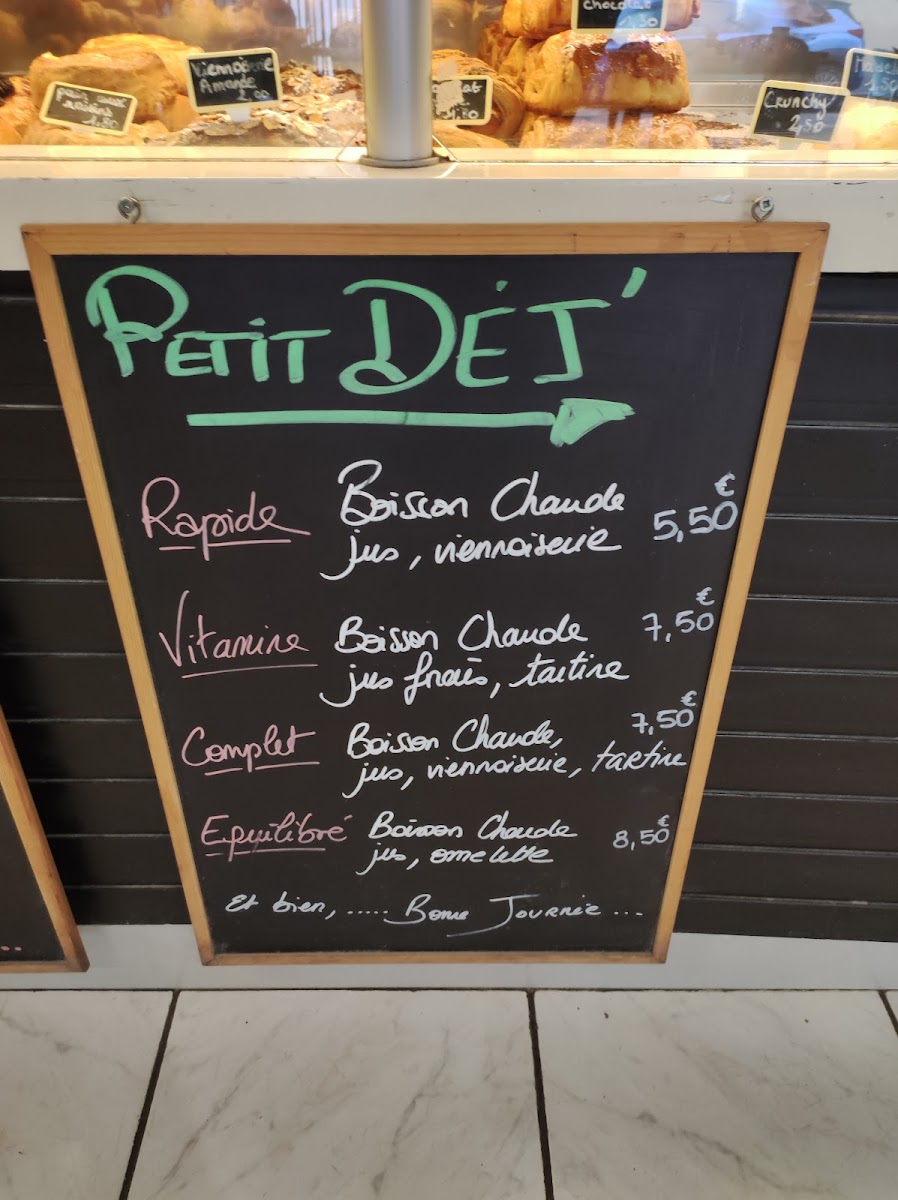 chocolat
1.30
Viennoise
Amande
2,00
pain aux
raisins
1.80
Crunchy
2,50
PETIT DÉJ'
Rapide Boisson Chaude 5,50 €
jus, viennoiserie
Vitamine Boisson Chaude 7,50 €
jus frais, tartine
Complet Boisson Chaude, 7,50 €
jus, viennoiserie, tartine
Equilibré Boisson Chaude 8,50 €
jus, omelette
Et bien, ..... Bonne Journée ...